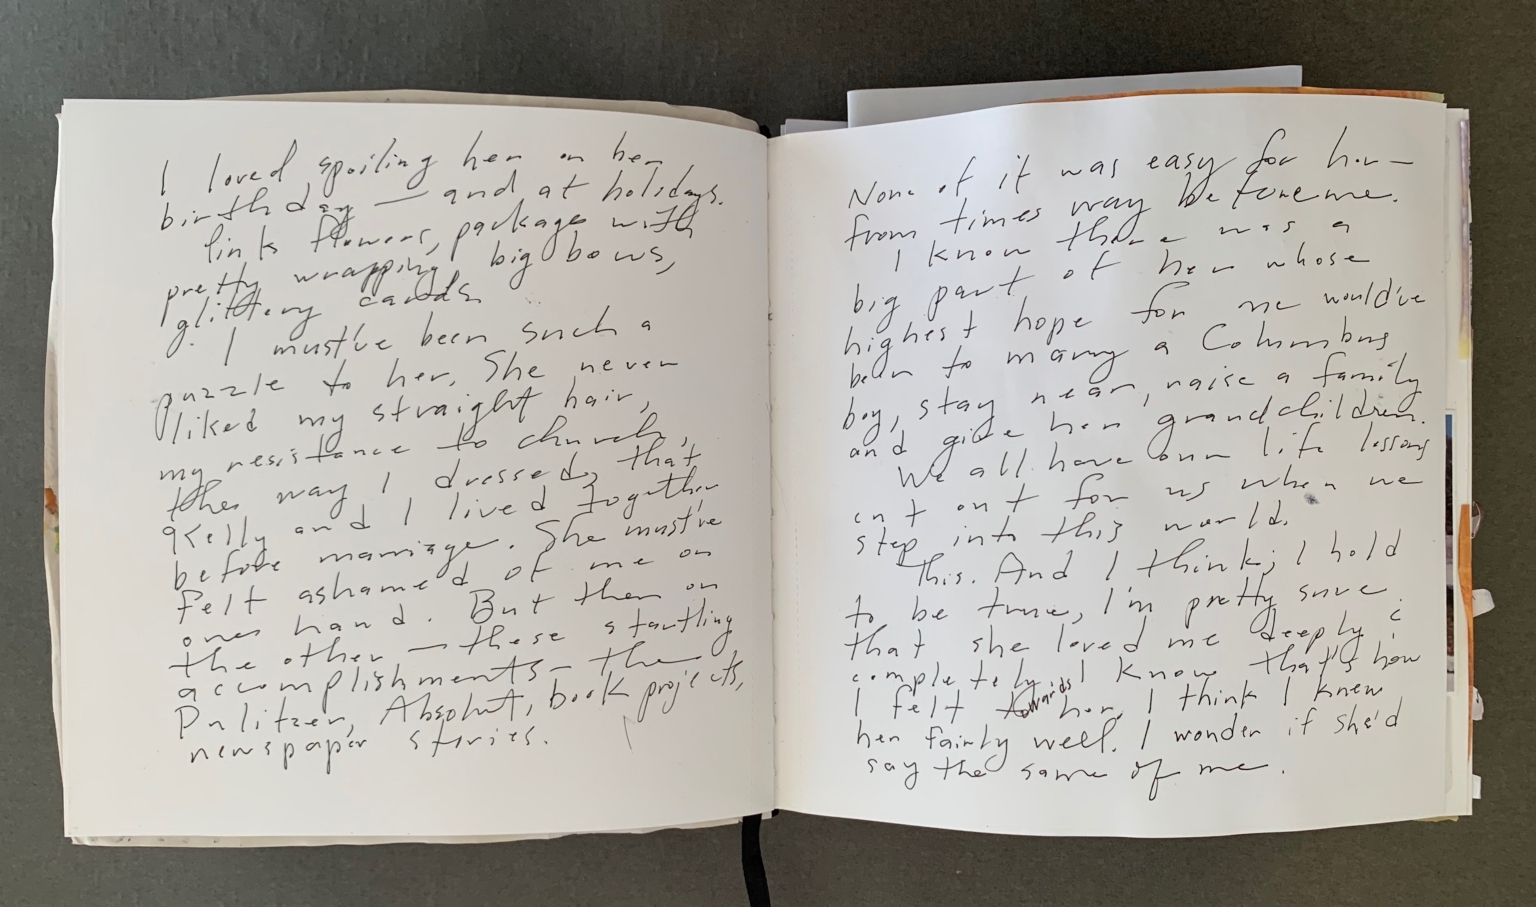 I loved spoiling her on her
birthday — and at holidays.
Pink flowers, packages with
pretty wrapping, big bows,
glittery cards.
I must've been such a
puzzle to her. She never
liked my straight hair,
my resistance to church,
the way I dressed, that
Kelly and I lived together
before marriage. She must've
felt ashamed of me on
one hand. But then on
the other — these startling
accomplishments — the
Pulitzer, Absolut, book projects,
newspaper stories.
None of it was easy for her —
from times way before me.
I know there was a
big part of her whose
highest hope for me would've
been to marry a Columbus
boy, stay near, raise a family
and give her grandchildren.
We all have our life lessons
cut out for us when we
step into this world.
This. And I think, I hold
to be true, I'm pretty sure
that she loved me deeply &
completely. I know that's how
I felt towards her. I think I knew
her fairly well. I wonder if she'd
say the same of me.